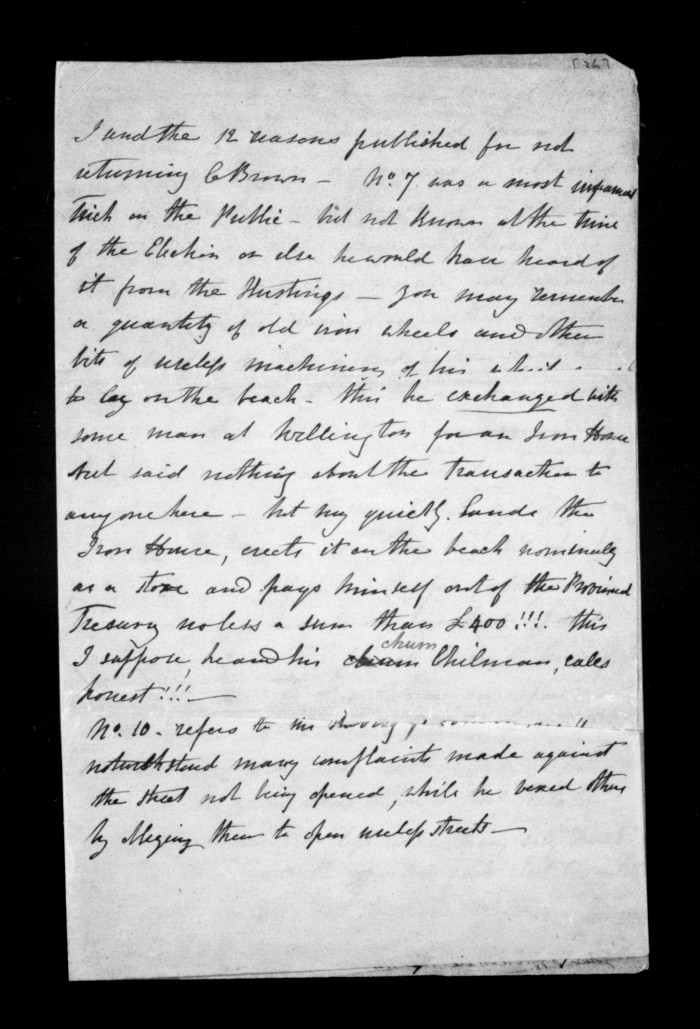 I and the 12 reasons published for not
returning C Brown - No. 7 was a most infamous
trick on the Public - but not Known at the time
of the Election or else he would have heard of
it from the Hustings - you may remember
a quantity of old iron wheels and other
bits of useless machinery of his
to lay on the beach - this he exchanged with
some man at Wellington for an Iron House
but said nothing about the transaction to
anyone here - but very quickly. Lands the
Iron House, erects it on the beach nominally
as a store and pays himself out of the Provincial
Tresury no less a sum than £400!!!. this
I suppose, he and his chum Chilman, calls
honest!!!-
No. 10 - refers to his
notwithstand many complaints made against
the street not being opened, while he vexed others
by obliging them to open useless streets-